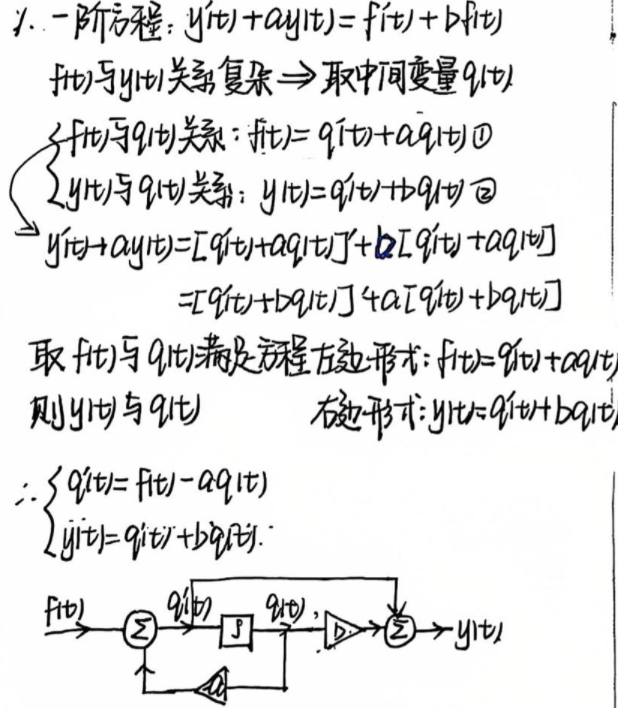 1. 一阶方程: y'(t)+ay(t)=f'(t)+bf(t)
f(t)与y(t)关系复杂⇒取中间变量q(t)
{f(t)与q(t)关系: f(t)=q'(t)+aq(t) ①
y(t)与q(t)关系: y(t)=q'(t)+bq(t) ②
y'(t)+ay(t)=[q'(t)+aq(t)]'+b[q'(t)+aq(t)]
=[q'(t)+bq(t)]'+a[q'(t)+bq(t)]
取f(t)与q(t)满足方程左边形式: f(t)=q'(t)+aq(t)
则y(t)与q(t) 右边形式: y(t)=q'(t)+bq(t)
∴{q'(t)=f(t)-aq(t)
y(t)=q'(t)+bq(t).
f(t) Σ q'(t) ∫ q(t) b Σ y(t)